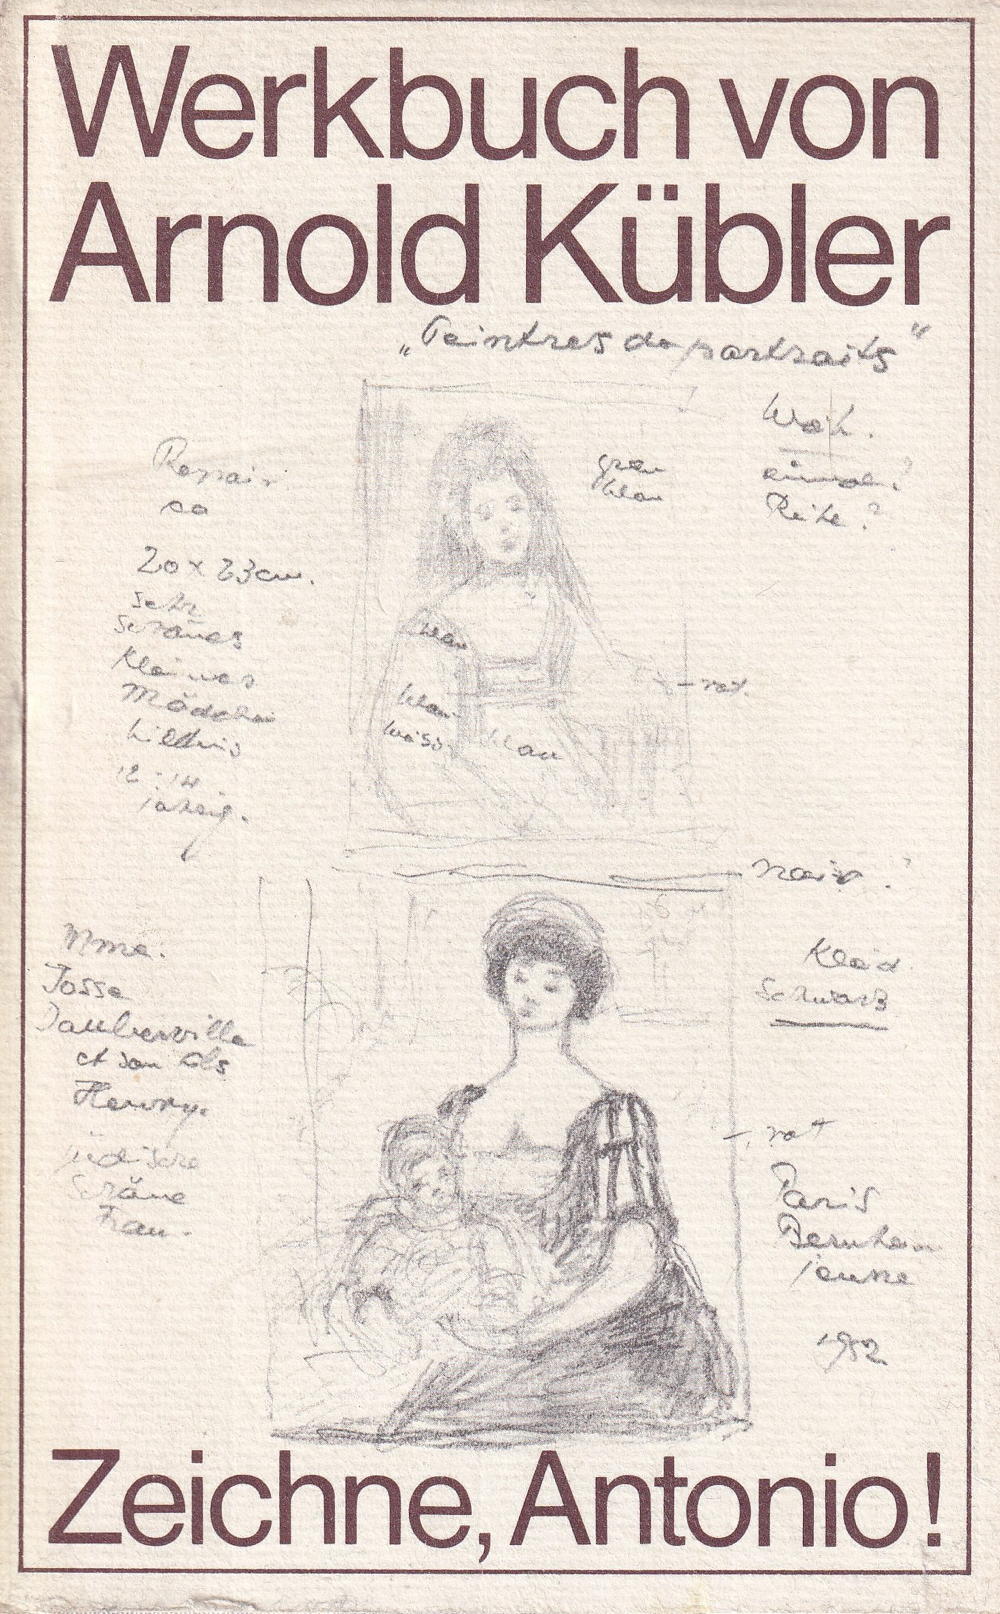 Werkbuch von
Arnold Kübler
„Peintres de portraits“
grau
blau
ca
20 x
sehr
schönes
kleines
Mädchen
bildnis
12-14
jährig.
blau
blau
weiss
blau
rot.
noir?
Mme.
Josse
et son fils
Henry.
jüdische
schöne
Frau.
Kleid
schwarz
rot
Paris
Bernheim
jeune
1952
Zeichne, Antonio!